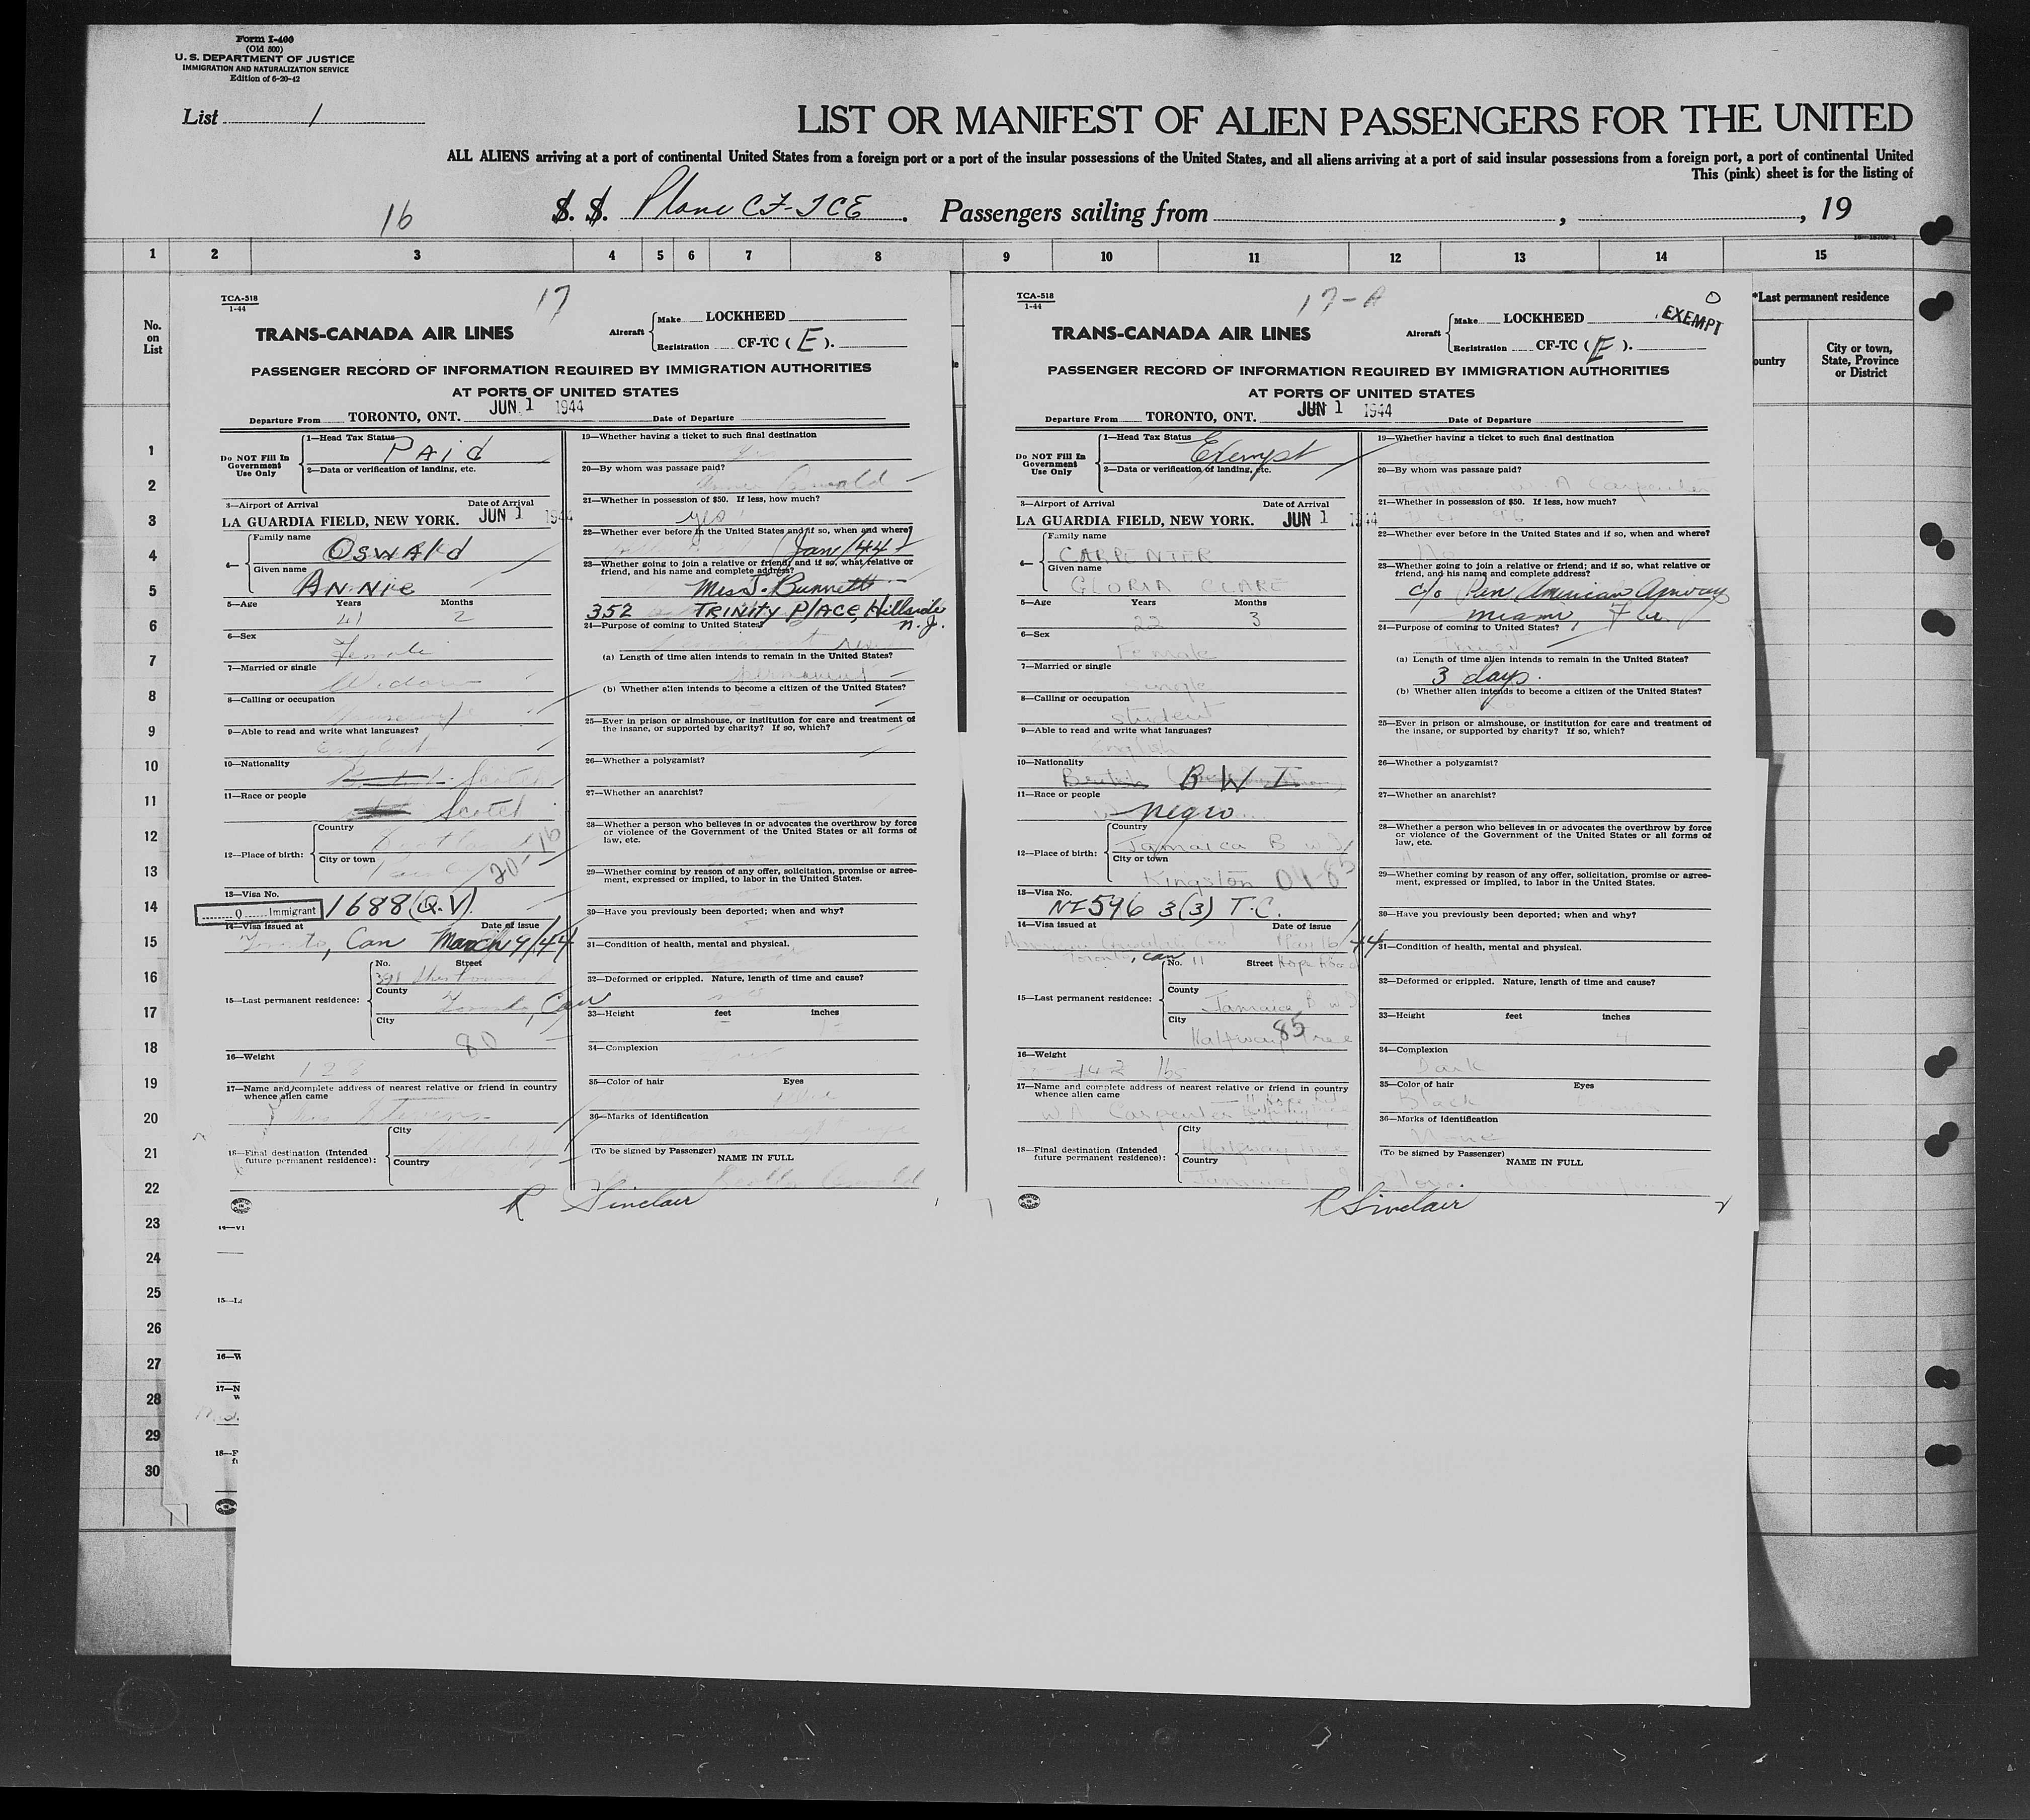 Form I-400
(Old 500)
U. S. DEPARTMENT OF JUSTICE
IMMIGRATION AND NATURALIZATION SERVICE
Edition of 6-20-42
List 1
LIST OR MANIFEST OF ALIEN PASSENGERS FOR THE UNITED
ALL ALIENS arriving at a port of continental United States from a foreign port or a port of the insular possessions of the United States, and all aliens arriving at a port of said insular possessions from a foreign port, a port of continental United
This (pink) sheet is for the listing of
16
S. S. Plane CF-TCE. Passengers sailing from , , 19
1 2 3 4 5 6 7 8 9 10 11 12 13 14 15
No.
on
List
*Last permanent residence
ountry
City or town,
State, Province
or District
1
2
3
4
5
6
7
8
9
10
11
12
13
14
15
16
17
18
19
20
21
22
23
24
25
26
27
28
29
30
TCA-518
1-44
17
TRANS-CANADA AIR LINES
Aircraft
Make LOCKHEED
Registration CF-TC ( E ).
PASSENGER RECORD OF INFORMATION REQUIRED BY IMMIGRATION AUTHORITIES
AT PORTS OF UNITED STATES
Departure From TORONTO, ONT. JUN 1 1944 Date of Departure
Do NOT Fill In
Government
Use Only
1—Head Tax Status PAid
2—Data or verification of landing, etc.
3—Airport of Arrival Date of Arrival
LA GUARDIA FIELD, NEW YORK. JUN 1 1944
4—
Family name
OSWAld
Given name
ANNie
5—Age Years Months
41 2
6—Sex
Female
7—Married or single
Widow
8—Calling or occupation
9—Able to read and write what languages?
English
10—Nationality
11—Race or people
Scotch
12—Place of birth:
Country
Scotland
City or town
20-16
13—Visa No.
Q Immigrant 1688 (Q.V)
14—Visa issued at Date of issue
Toronto, Can March 9/44
15—Last permanent residence:
No. Street
County
Toronto, Can
City
80
16—Weight
17—Name and complete address of nearest relative or friend in country
whence alien came
Stevens
18—Final destination (Intended
future permanent residence):
City
Country
19—Whether having a ticket to such final destination
20—By whom was passage paid?
Annie Oswald
21—Whether in possession of $50. If less, how much?
yes
22—Whether ever before in the United States and if so, when and where?
Jan/44
23—Whether going to join a relative or friend; and if so, what relative or
friend, and his name and complete address?
Mrs J. Bunnett
352 TRINITY PLACE, Hillside
N.J.
24—Purpose of coming to United States?
(a) Length of time alien intends to remain in the United States?
permanent
(b) Whether alien intends to become a citizen of the United States?
25—Ever in prison or almshouse, or institution for care and treatment of
the insane, or supported by charity? If so, which?
26—Whether a polygamist?
27—Whether an anarchist?
28—Whether a person who believes in or advocates the overthrow by force
or violence of the Government of the United States or all forms of
law, etc.
29—Whether coming by reason of any offer, solicitation, promise or agree-
ment, expressed or implied, to labor in the United States.
30—Have you previously been deported; when and why?
31—Condition of health, mental and physical.
32—Deformed or crippled. Nature, length of time and cause?
33—Height feet inches
34—Complexion
35—Color of hair Eyes
36—Marks of identification
(To be signed by Passenger)
NAME IN FULL
R Sinclair
TCA-518
1-44
17-A
EXEMPT
TRANS-CANADA AIR LINES
Aircraft
Make LOCKHEED
Registration CF-TC ( E ).
PASSENGER RECORD OF INFORMATION REQUIRED BY IMMIGRATION AUTHORITIES
AT PORTS OF UNITED STATES
Departure From TORONTO, ONT. JUN 1 1944 Date of Departure
Do NOT Fill In
Government
Use Only
1—Head Tax Status Exempt
2—Data or verification of landing, etc.
3—Airport of Arrival Date of Arrival
LA GUARDIA FIELD, NEW YORK. JUN 1 1944
4—
Family name
CARPENTER
Given name
GLORIA CLARE
5—Age Years Months
22 3
6—Sex
Female
7—Married or single
Single
8—Calling or occupation
student
9—Able to read and write what languages?
English
10—Nationality
British B W I
11—Race or people
Negro
12—Place of birth:
Country
Jamaica B W I
City or town
Kingston 04-85
13—Visa No.
NI 596 3(3) T.C.
14—Visa issued at Date of issue
May 16/44
Toronto, Can
15—Last permanent residence:
No. 11 Street Hope Road
County
Jamaica B W I
City 85
Halfway Tree
16—Weight
142 lbs
17—Name and complete address of nearest relative or friend in country
whence alien came
W A Carpenter
18—Final destination (Intended
future permanent residence):
City
Halfway Tree
Country
Jamaica
19—Whether having a ticket to such final destination
20—By whom was passage paid?
A Carpenter
21—Whether in possession of $50. If less, how much?
22—Whether ever before in the United States and if so, when and where?
No
23—Whether going to join a relative or friend; and if so, what relative or
friend, and his name and complete address?
c/o Pan American Airways
Miami, Fla.
24—Purpose of coming to United States?
(a) Length of time alien intends to remain in the United States?
3 days.
(b) Whether alien intends to become a citizen of the United States?
25—Ever in prison or almshouse, or institution for care and treatment of
the insane, or supported by charity? If so, which?
26—Whether a polygamist?
27—Whether an anarchist?
28—Whether a person who believes in or advocates the overthrow by force
or violence of the Government of the United States or all forms of
law, etc.
29—Whether coming by reason of any offer, solicitation, promise or agree-
ment, expressed or implied, to labor in the United States.
30—Have you previously been deported; when and why?
31—Condition of health, mental and physical.
32—Deformed or crippled. Nature, length of time and cause?
33—Height feet inches
34—Complexion
Dark
35—Color of hair Eyes
Black
36—Marks of identification
None
(To be signed by Passenger)
NAME IN FULL
R Sinclair